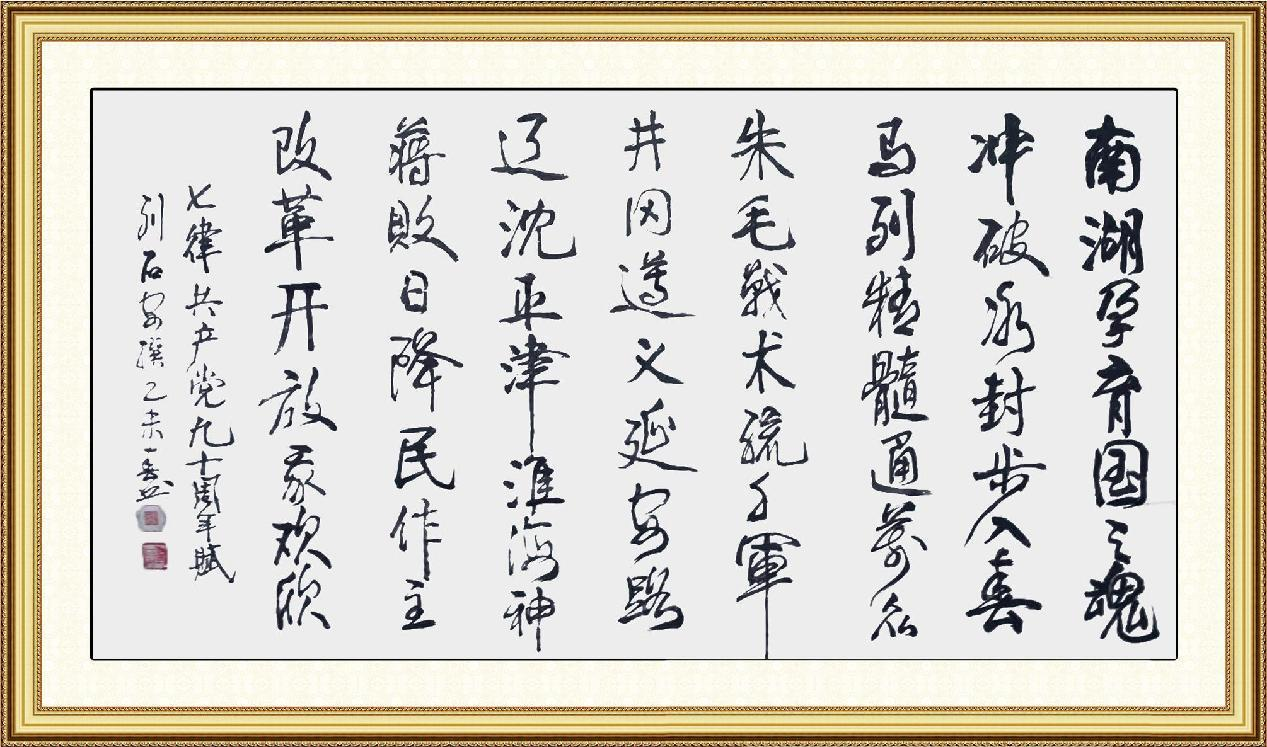 南湖孕育国之魂
冲破冰封步入春
马列精髓通萬众
朱毛戰术统千軍
井冈遵义延安路
辽沈平津淮海神
蒋敗日降民作主
改革开放欢欣
七律共产党九十周年赋
刘石安撰乙未